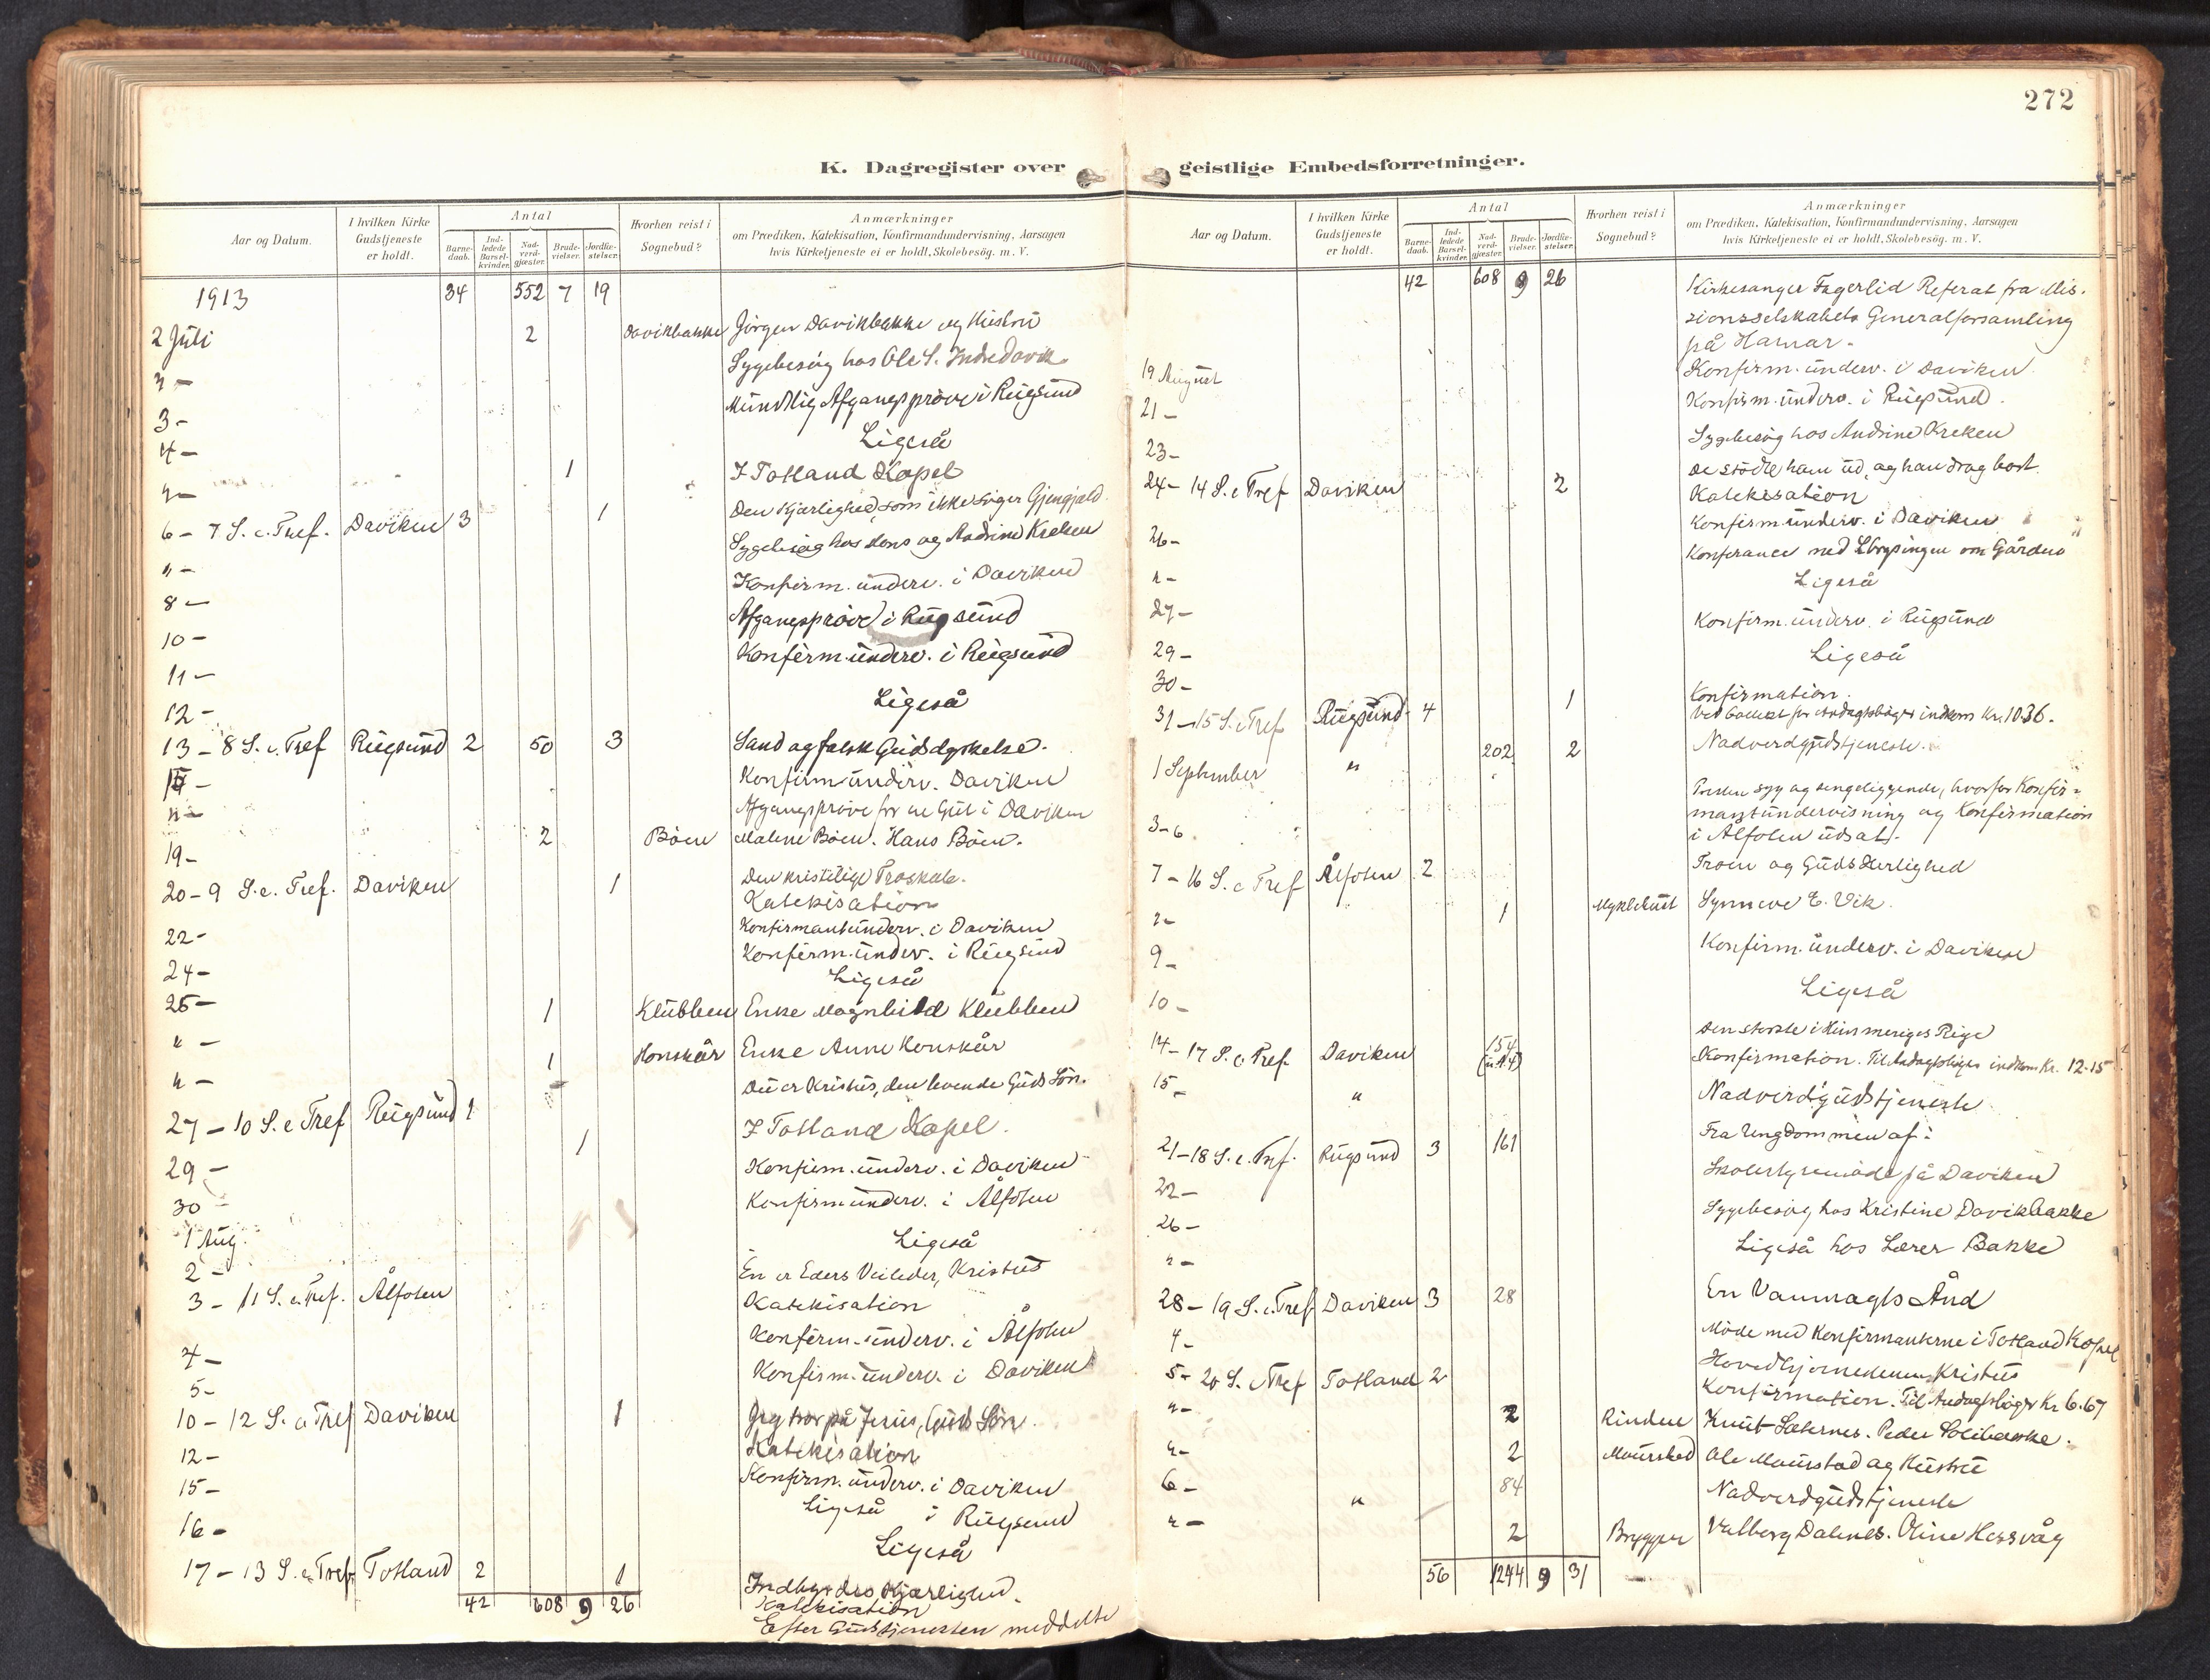 272
K. Dagregister over geistlige Embedsforretninger.
Aar og Datum.
I hvilken Kirke Gudstjeneste er holdt.
Antal
Barne-daab.
Ind-ledede Barsel-kvinder.
Nad-verd-gjæster.
Brude-vielser.
Jordfæ-stelser.
Hvorhen reist i Sognebud?
Anmærkninger
om Prædiken, Katekisation, Konfirmandundervisning, Aarsagen
hvis Kirketjeneste ei er holdt, Skolebesøg. m. V.
1913 34 552 7 19
2 Juli 2 Davikbakke Jörgen Davikbakke og Hustru
" - Sygebesög hos Ole S. Indre Davik
3 - Mündtlig Afgangspröve i Rügsünd
4 - Ligeså
" - 1 I Totland Kapel
6 - 7 S. e. Tref. Daviken 3 1 Den Kjærlighed, som ikke söger Gjengjæld
" - Sygebesög hos Jens og Andrine Kreken
8 - Konfirm. ünderv. i Daviken
10 - Afgangspröve i Rügsünd
11 - Konfirm. ünderv. i Rügsünd
12 - Ligeså
13 - 8 S. e. Tref Rügsünd 2 50 3 Sand og falsk Gudsdyrkelse.
15 - Konfirm ünderv. Daviken
" - Afgangspröve for en Gut i Daviken
19 - 2 Böen Malene Böen. Hans Böen.
20 - 9 S. e. Tref. Daviken 1 Den kristelige Troskab.
Katekisation
22 - Konfirmantünderv. i Daviken
24 - Konfirm. ünderv. i Rügsünd
25 - Ligeså
" - 1 Klübben Enke Magnhild Klübben
" - 1 Honskår Enke Anne Honskår
27 - 10 S. e Tref Rügsünd 1 Dü er Kristüs, den levende Güds Sön.
29 - 1 I Totland Kapel.
30 - Konfirm. ünderv. i Daviken
1 Aug. Konfirm ünderv. i Ålfoten
2 - Ligeså
3 - 11 S. e. Tref. Ålfoten Èn er Eders Veileder, Kristüs
Katekisation
4 - Konfirm. ünderv. i Ålfoten
5 - Konfirm. ünderv. i Daviken
10 - 12 S. e Tref Daviken 1 Jeg tror på Jesus, Guds Sön.
Katekisation
12 - Konfirm. ünderv. i Daviken
15 - Ligeså i Rügsünd
16 - Ligeså
17 - 13 S. e. Tref Totland 2 1 Indbyrdes Kjærlighed.
Katekisation
42 608 9 26 Efter Gudstjenesten meddelte
Aar og Datum.
I hvilken Kirke Gudstjeneste er holdt.
Antal
Barne-daab.
Ind-ledede Barsel-kvinder.
Nad-verd-gjæster.
Brude-vielser.
Jordfæ-stelser.
Hvorhen reist i Sognebud?
Anmærkninger
om Prædiken, Katekisation, Konfirmandundervisning, Aarsagen
hvis Kirketjeneste ei er holdt, Skolebesøg. m. V.
42 608 9 26 Kirkesanger Fagerlid Referat fra Mis-
sionsselskabets Generalforsamling
på Hamar.
19 August Konfirm. ünderv. i Daviken
21 - Konfirm. ünderv. i Rügsünd.
23 - Sygebesög hos Andrine Kreken
24 - 14 S. e Tref Daviken 2 De stödte ham üd, og han drog bort.
Katekisation
26 - Konfirm. ünderv. i Daviken
" - Konferance med om Gården
27 - Ligeså
29 - Konfirm. ünderv. i Rügsünd
30 - Ligeså
31 - 15 S. e Tref Rügsünd 4 1 Konfirmation.
Ved Collekt for Andagtsböger indkom Kr. 10.36.
1 September " 202 2 Nadverdgüdstjeneste.
3-6 Presten syg og sengeliggende, hvorfor Konfir-
mantündervisning og Konfirmation
i Ålfoten üdsat.
7 - 16 S. e Tref Ålfoten 2 Troen og Güds Herlighed
" - 1 Myklebüst Synneve E. Vik.
9 - Konfirm. ünderv. i Daviken
10 - Ligeså
14 - 17 S. e. Tref. Daviken 154 Den störste i Himmeriges Rige
Konfirmation. Til Andagtsböger indkom Kr. 12.15
15 - " Nadverdgüdstjeneste
21 - 18 S. e. Tref. Rügsünd 3 161 Fra Ungdommen af.
22 - Skolestyremöde på Daviken
26 - Sygebesög hos Kristine Davikbakke
" - Ligeså hos Lærer Bakke
28 - 19 S. e. Tref Daviken 3 28 En Vanmagts Ånd
4 - Möde med Konfirmanterne i Totland Kapel
5 - 20 S. e Tref Totland 2 Hovedhjörnestenen Kristüs
Konfirmation. Til Andagtsböger Kr. 6.67
" - 2 Rinden Knüt Sæternes. Peder
" - 2 Maürstad Ole Maürstad og Hüstrü
6 - " 84 Nadverdgüdstjeneste
" - 2 Brygger Valborg Dalenes. Oline Hessvåg
56 1244 9 31